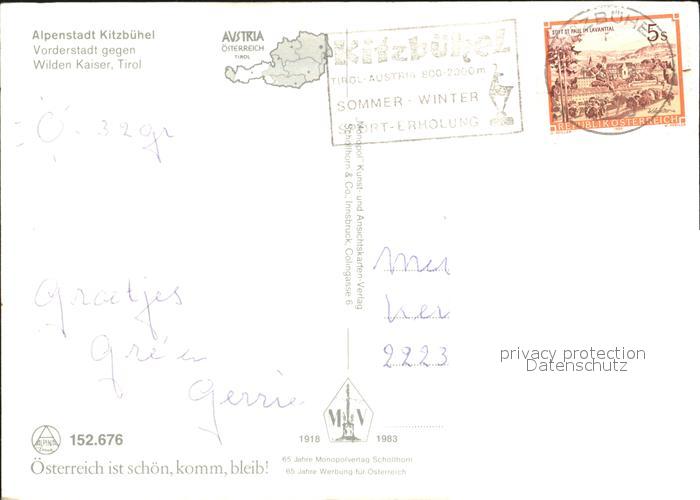 Alpenstadt Kitzbühel
Vorderstadt gegen
Wilden Kaiser, Tirol
AVSTRIA
ÖSTERREICH
TIROL
Kitzbühel
TIROL-AUSTRIA 800-2000m
SOMMER - WINTER
SPORT-ERHOLUNG
KITZBÜHEL
STIFT ST. PAUL IM LAVANTTAL
5s
REPUBLIK ÖSTERREICH
32 gr
„Monopol" Kunst- und Ansichtskarten-Verlag
Schöllhorn & Co., Innsbruck, Colingasse 6
Groetjes
Gré en
Gerrie
2223
privacy protection
Datenschutz
ALPINA
152.676
M V
1918 1983
65 Jahre Monopolverlag Schöllhorn
65 Jahre Werbung für Österreich
Österreich ist schön, komm, bleib!